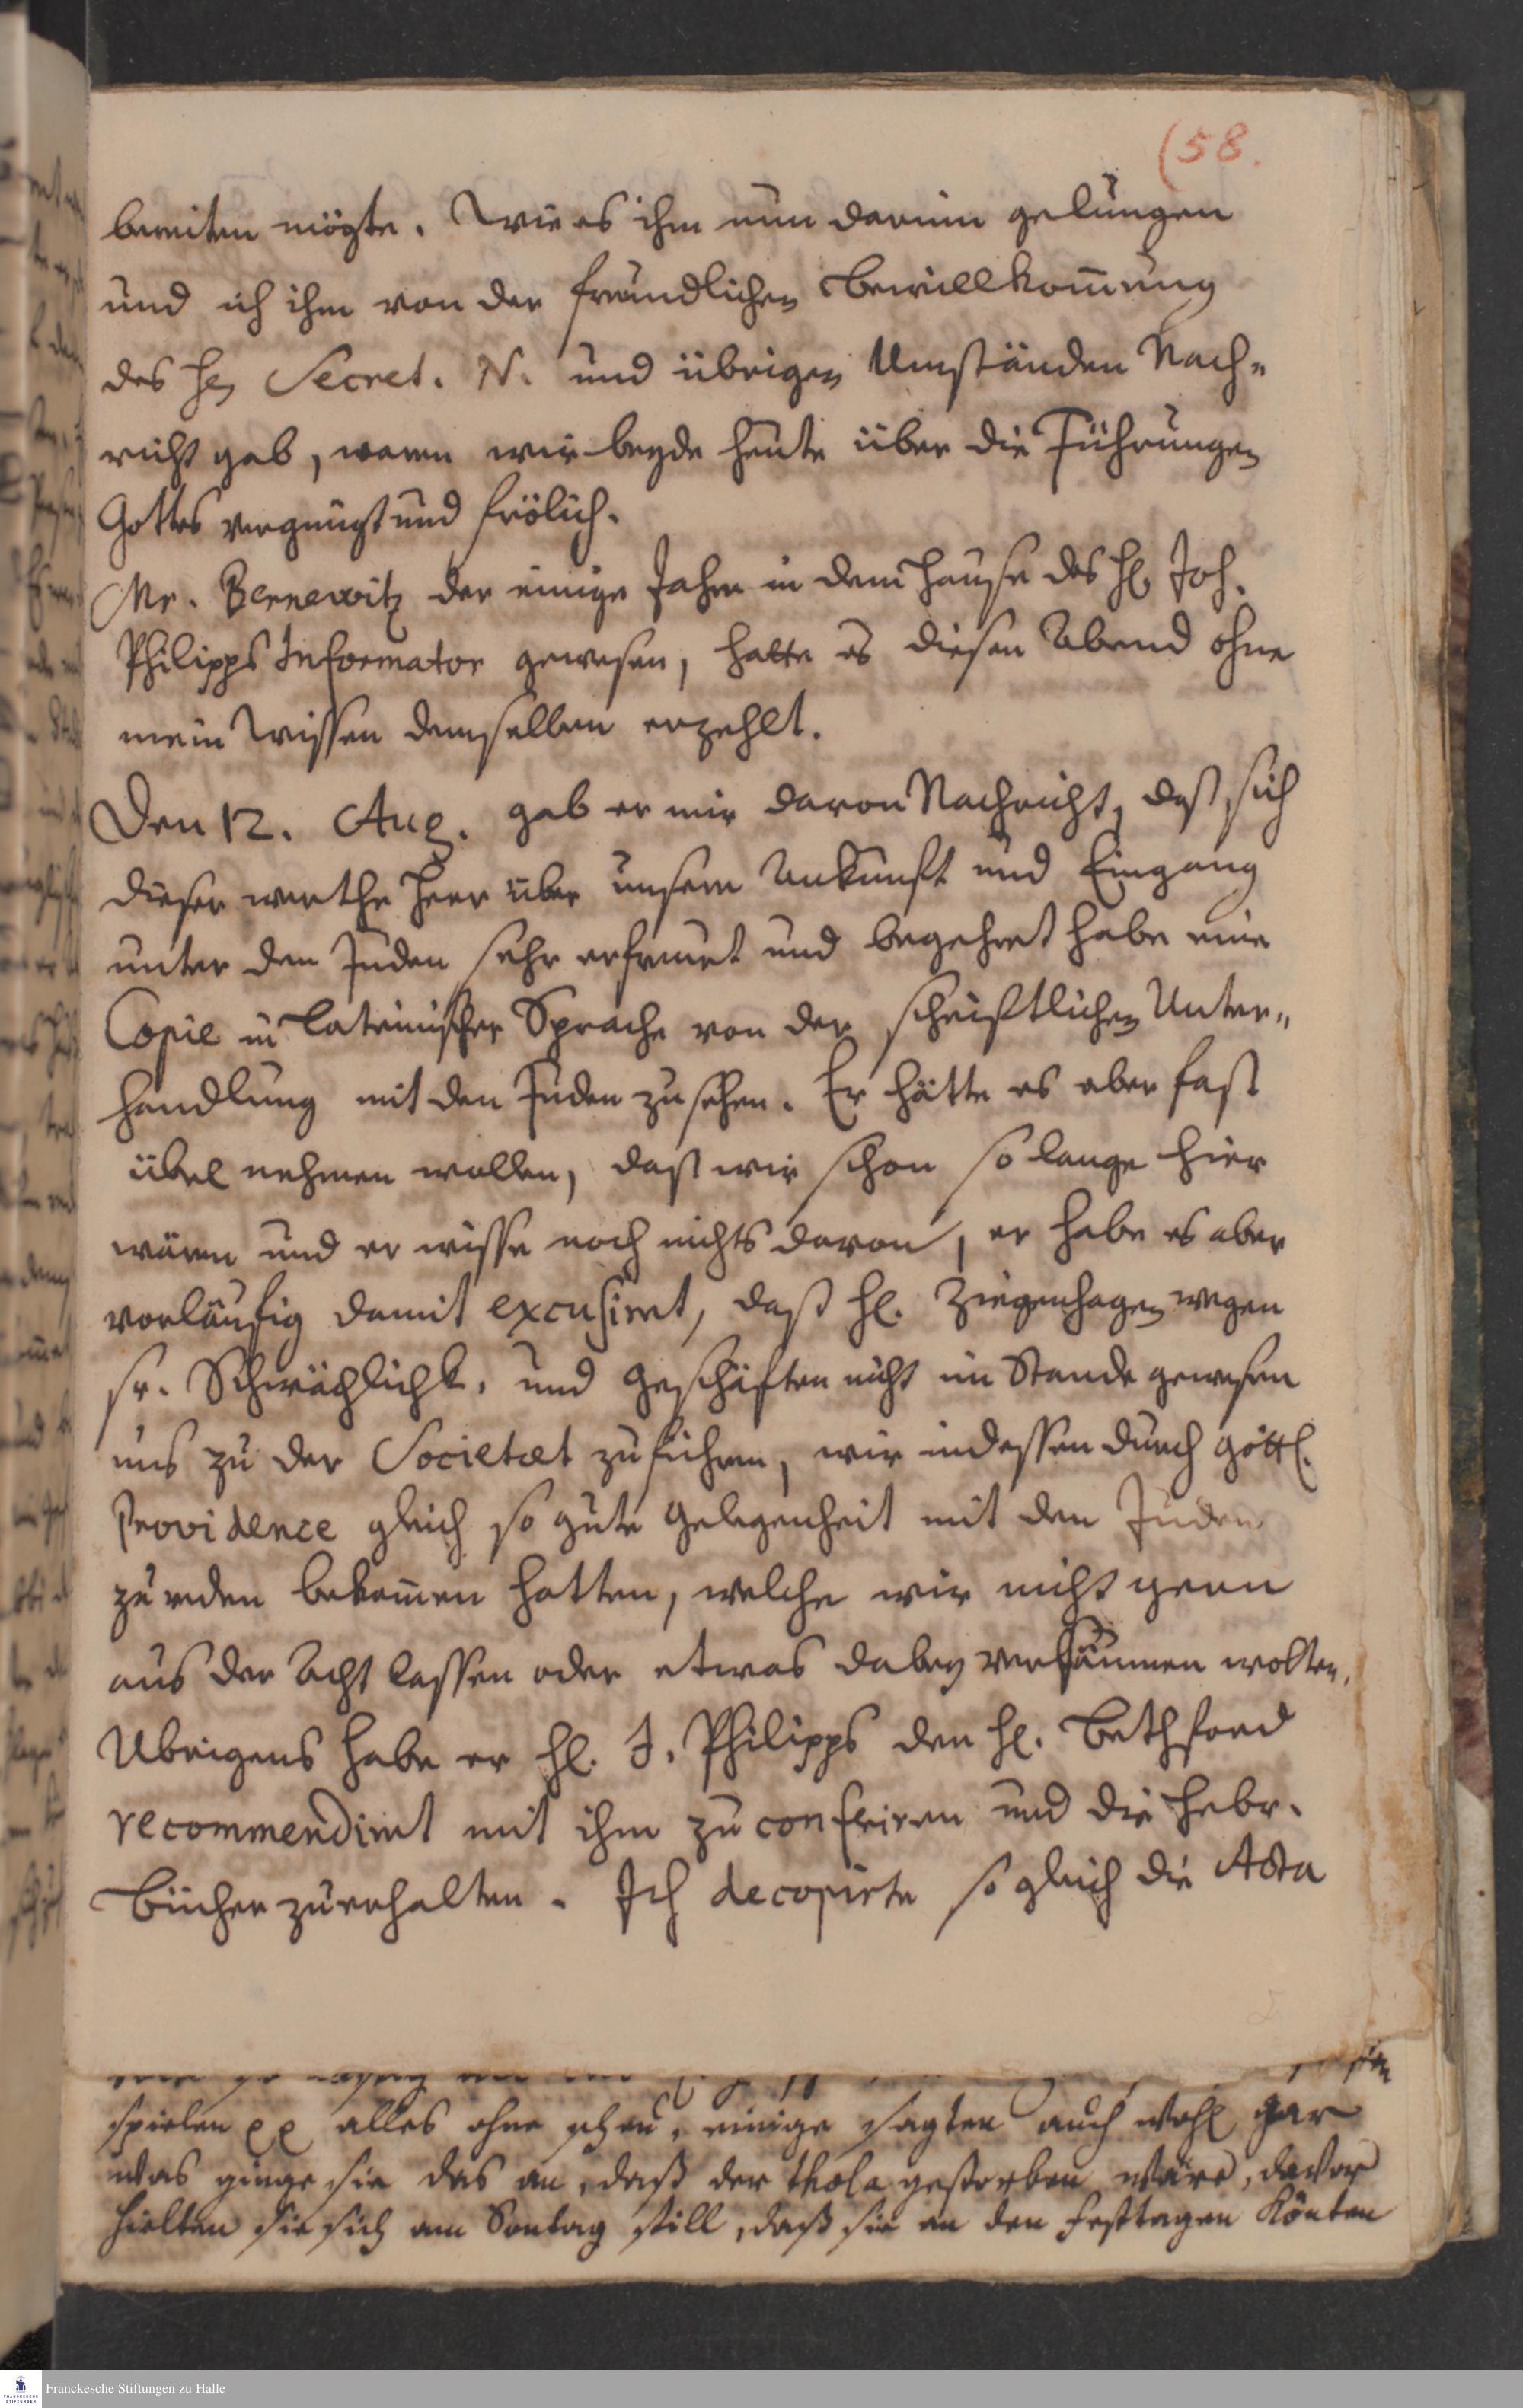 (58.
bereiten mögte. Wie es ihm nun darin gelungen
und ich ihm von der freundlichen Bewillkom̅ung
des Hn Secret. N. und übrigen Umständen Nach-
richt gab, waren wir beyde heute über die Führungen
Gottes vergnügt und frölich.
Mr. Bennewitz der einige Jahre in dem Hause des H. Joh.
Philipps Informator gewesen, hatte es diesen Abend ohne
mein Wissen demselben erzehlt.
Den 12. Aug. gab er mir davon Nachricht, daß sich
dieser werthe Herr über unsere Ankunft und Eingang
unter den Juden sehr erfreuet und begehret habe eine
Copie in lateinischer Sprache von der schriftlichen Unter-
handlung mit den Juden zu sehen. Er hätte es aber fast
übel nehmen wollen, daß wir schon so lange hier
wären und er wisse noch nichts davon, er habe es aber
vorläufig damit excusiret, daß H. Ziegenhagen wegen
sr. Schwächlichk. und Geschäften nicht im Stande gewesen
uns zu der Societæt zu führen, wir indessen durch göttl.
Providence gleich so gute Gelegenheit mit den Juden
zu reden bekom̅en hatten, welche wir nicht gern
aus der Acht lassen oder etwas dabey versäumen wolten.
Ubrigens habe er H. J. Philipps den H. Bethford
recommendiret mit ihm zu conferiren und die Hebr.
Bücher zu erhalten. Ich decopirte so gleich die Acta
spielen alles ohne scheu, einige sagten auch wohl gar
was ginge sie das an, daß der gestorben wäre, davor
hielten sie sich am Sontag still, daß sie an den Festtagen könten